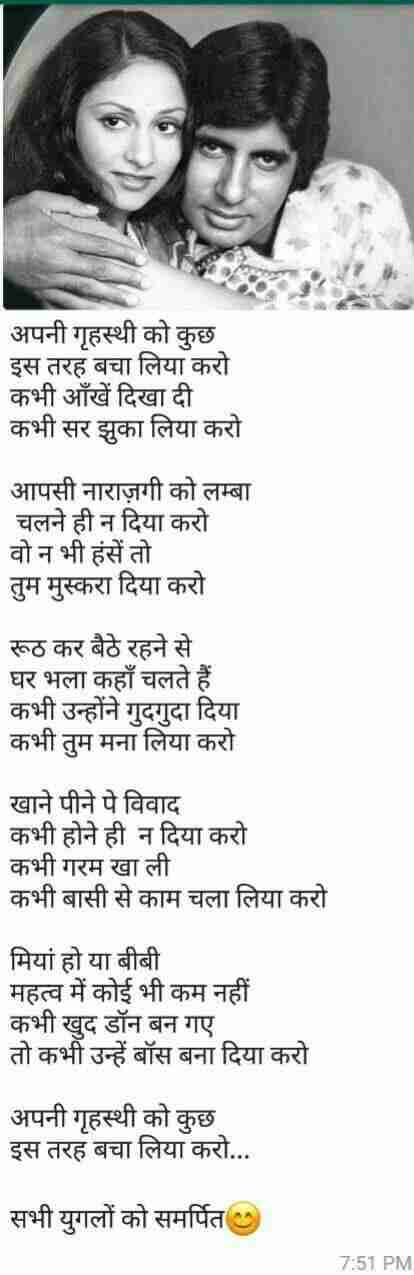 अपनी गृहस्थी को कुछ
इस तरह बचा लिया करो
कभी आँखें दिखा दी
कभी सर झुका लिया करो
आपसी नाराज़गी को लम्बा
चलने ही न दिया करो
वो न भी हंसें तो
तुम मुस्करा दिया करो
रूठ कर बैठे रहने से
घर भला कहाँ चलते हैं
कभी उन्होंने गुदगुदा दिया
कभी तुम मना लिया करो
खाने पीने पे विवाद
कभी होने ही न दिया करो
कभी गरम खा ली
कभी बासी से काम चला लिया करो
मियां हो या बीबी
महत्व में कोई भी कम नहीं
कभी खुद डॉन बन गए
तो कभी उन्हें बॉस बना दिया करो
अपनी गृहस्थी को कुछ
इस तरह बचा लिया करो...
सभी युगलों को समर्पित😊
7:51 PM